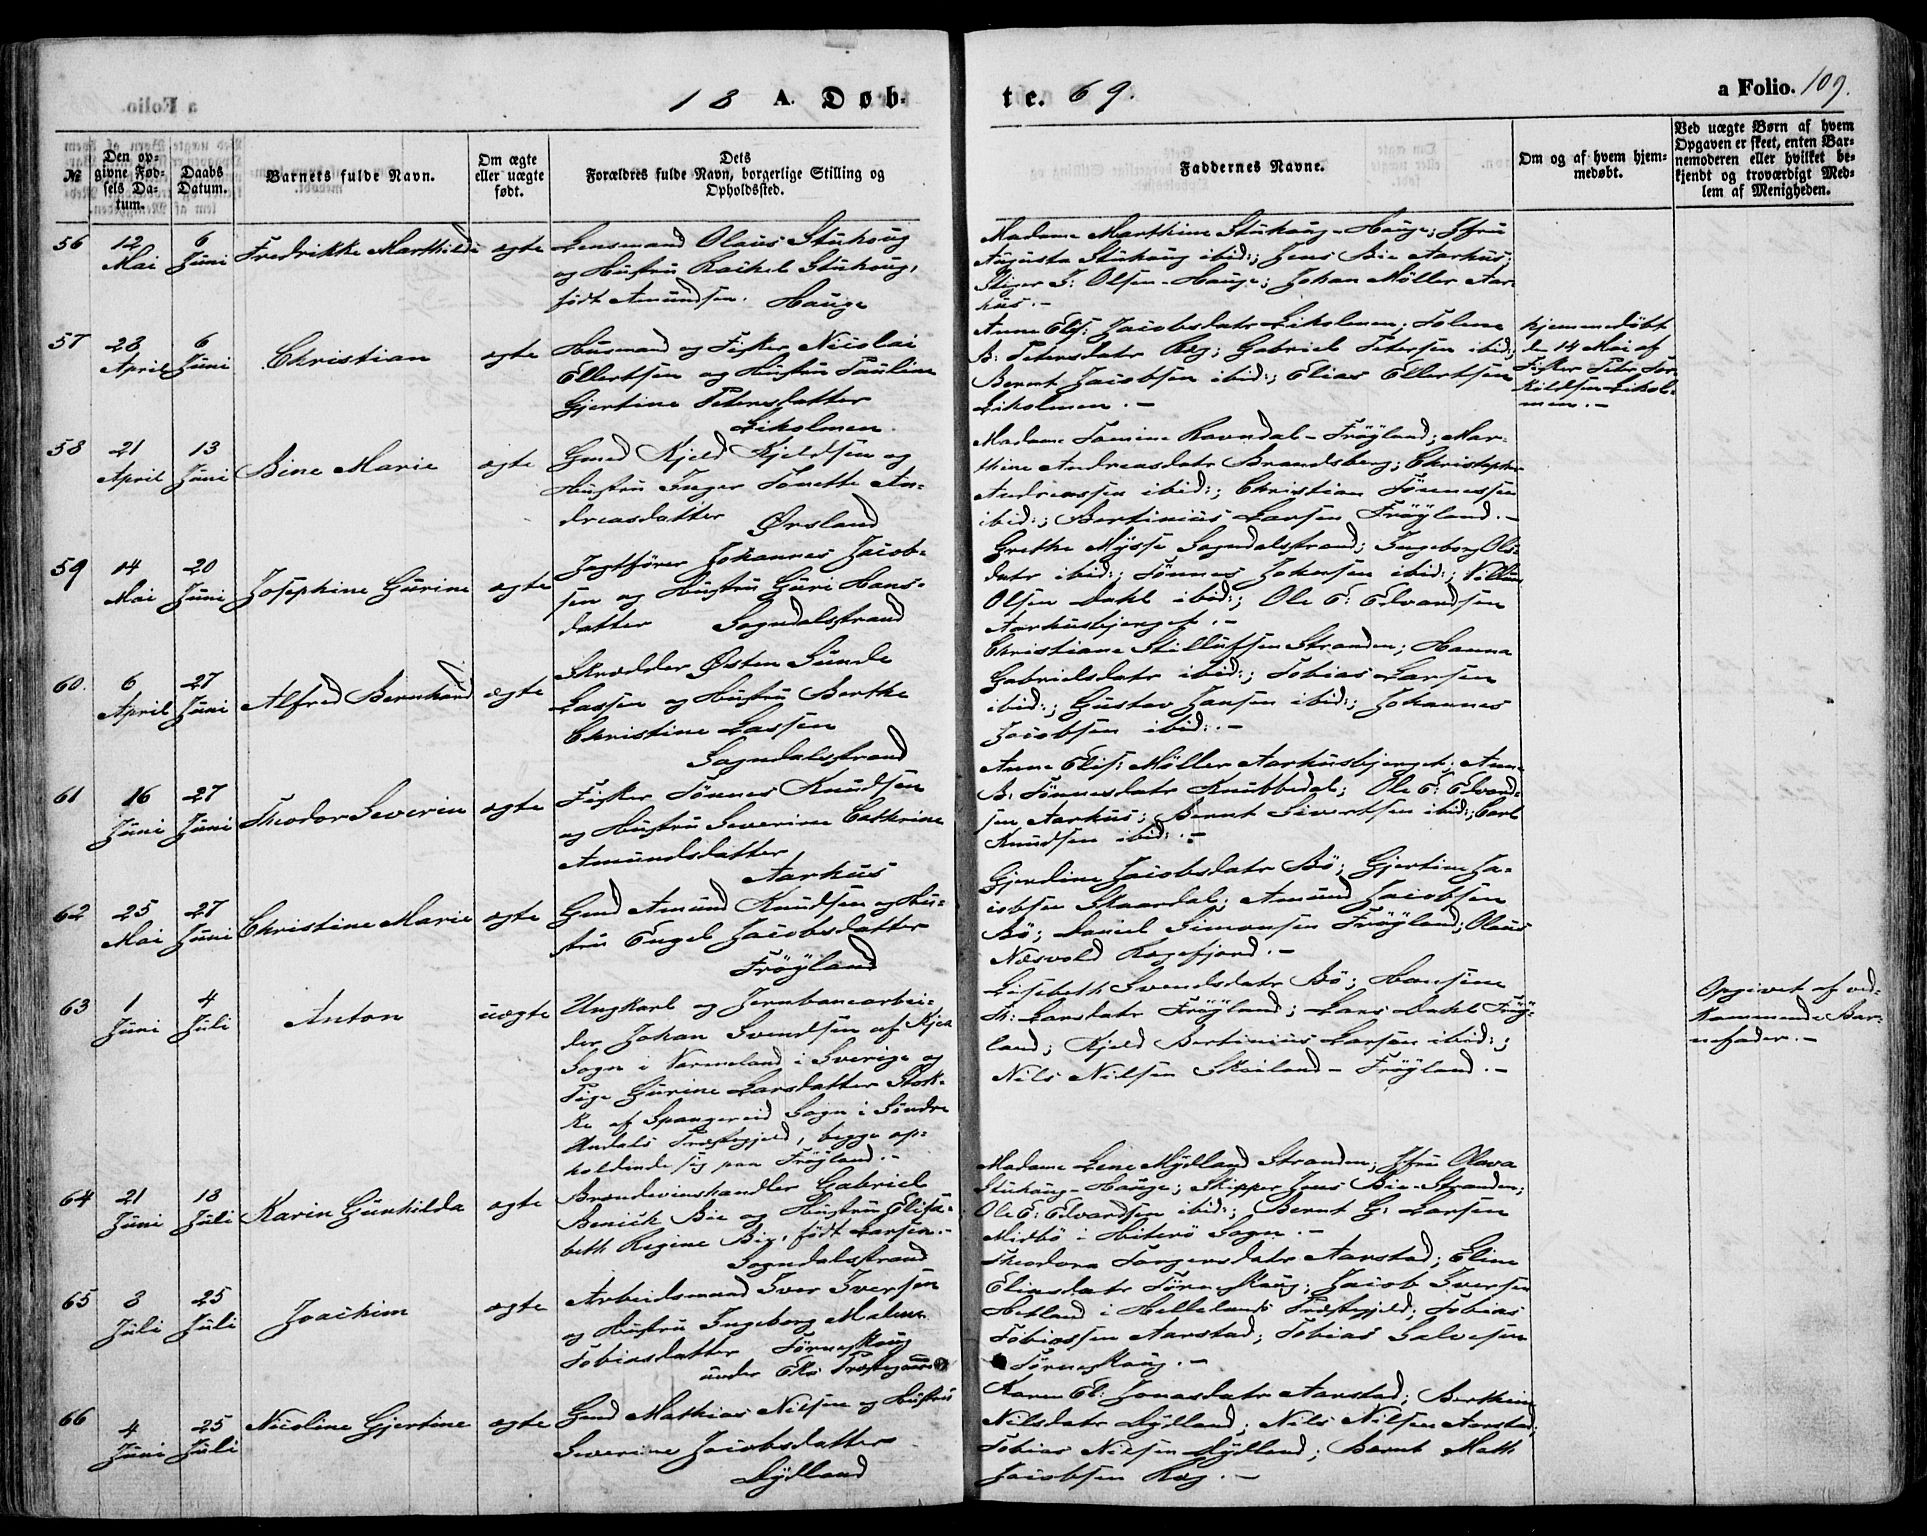 18 A. Døb-
te. 69.
a Folio. 109.
№
Den op-
givne Fød-
sels Da-
tum.
Daabs
Datum.
Barnets fulde Navn.
Om ægte
eller uægte
født.
Dets
Forældres fulde Navn, borgerlige Stilling og
Opholdssted.
Faddernes Navne.
Om og af hvem hjem-
medøbt.
Ved uægte Børn af hvem
Opgaven er skeet, enten Bar-
nemoderen eller hvilket be-
kjendt og troværdigt Med-
lem af Menigheden.
56
12 Mai
6 Juni
Fredrikke Marthilde
ægte
Lensmand Olaus Stuhoug
og Hustru Rachel Stuhoug,
født Amundsen. Hauge
Madame Marthine Stuhaug-Hauge; Jfru
Augusta Stuhaug ibid:; Jens Bie Aarhus;
Stiger J: Olsen-Hauge; Johan Møller Aar-
hus.-
57
28 April
6 Juni
Christian
ægte
Husmand og Fisker Nicolai
Ellertsen og Hustru Pauline
Gjertine Petersdatter
Liholmen.
Anne Elis: Jacobsdatr Liholmen; Tolene
B: Petersdatr Røg; Gabriel Petersen ibid:;
Bernt Jacobsen ibid:; Elias Ellertsen
Liholmen.-
hjemmedøbt
de 14 Mai af
Fisker Peter Tor-
kildsen Lihol-
men.-
58
21 April
13 Juni
Bine Marie
ægte
Gmd Kjeld Kjeldsen og
Hustru Inger Tonette An-
dreasdatter Ørsland
Madame Tomine Ravndal-Frøyland; Mar-
thine Andreasdatr Brandsberg; Christopher
Andreassen ibid:; Christian Tønnessen
ibid:; Bertinius Larsen Frøyland.-
59
14 Mai
20 Juni
Josephine Gurine
ægte
Jagtfører Johannes Jacob-
sen og Hustru Guri Hans-
datter Sogndalstrand
Grethe Mysse Sogndalstrand; Ingeborg Ols-
datr ibid:; Tønnes Johansen ibid:; Villum
Olsen Dahl ibid:; Ole E: Edvardsen
Aarhusbjerget.-
60.
6 April
27 Juni
Alfred Bernhard
ægte
Skrædder Østen Sunde
Lassen og Hustru Berthe
Christine Lassen
Sogndalsstrand
Christiane Stilluffsen Stranden; Hanna
Gabrielsdatr ibid:; Tobias Larsen
ibid:; Gustav Hansen ibid:; Johannes
Jacobsen ibid:.-
61
16 Juni
27 Juni
Theodor Severin
ægte
Fisker Tønnes Knudsen
og Hustru Severine Cathrine
Amundsdatter
Aarhus
Anne Elis: Møller Aarhusbjerget; Anne
B: Tønnesdatr Knubbedal; Ole E: Edvard-
sen Aarhus; Bernt Sivertsen ibid:; Carl
Knudsen ibid:.-
62
25 Mai
27 Juni
Christine Marie
ægte
Gmd Amund Knudsen og Hus-
tru Engel Jacobsdatter
Frøyland
Gjerdine Jacobsdatr Bø; Gjertine Ja-
cobsen Skaardal; Amund Jacobsen
Bø; Daniel Simonsen Frøyland; Olaus
Næsvold Rægefjord.-
63
1 Juni
4 Juli
Anton
uægte
Ungkarl og Jernbanearbei-
der Johan Svendsen af
Sogn i Varmeland i Sverige og
Pige Gurine Larsdatter Stok-
ke af Spangereid Sogn i Søndre
Undals Præstegjeld, begge op-
holdende sig paa Frøyland.-
Lisebeth Svendsdatr Bø; Hansine
Th: Larsdatr Frøyland; Lars Dahl Frøy-
land; Kjeld Bertinius Larsen ibid:;
Nils Nilsen Skeiland-Frøyland.-
Opgivet af ved-
kommende Bar-
nefader.-
64
21 Juni
18 Juli
Karin Gunhilda
ægte
Brændevinshandler Gabriel
Benick Bie og Hustru Elisa-
beth Regine Bie, født Larsen.-
Sogndalstrand
Madame Lene Mydland Stranden; Jfru Olava
Stuhaug-Hauge; Skipper Jens Bie-Stranden;
Ole E: Edvardsen ibid:; Bernt G: Larsen
Midbø-Hiterø Sogn.-
65
3 Juli
25 Juli
Joachim
ægte
Arbeidsmand Iver Iversen
og Hustru Ingeborg Malene
Tobiasdatter Tørneshaug
under Eks Præstegaard
Theodora Torgersdatr Aarstad; Eline
Eliasdatr Tørneshaug; Jacob Iversen
Hetland i Hellelands Præstegjeld; Tobias
Tobiassen Aarstad; Tobias Salvesen
Tørneshaug.-
66
4 Juni
25 Juli
Nicoline Gjertine
ægte
Gmd Mathias Nilsen og Hustru
Severine Jacobsdatter
Dydland
Karen El: Jonasdatr Aarstad; Berthine
Nilsdatr Dydland; Nils Nilsen Aarstad;
Tobias Nilsen Dydland; Bernt Math
Jacobsen Røg.-